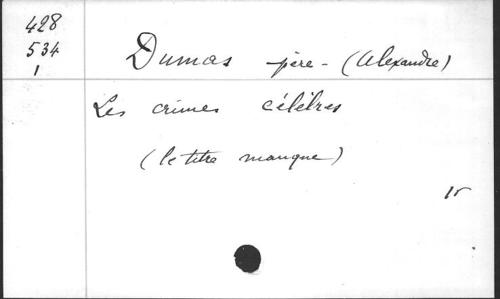 428
534
1
Dumas père - (Alexandre)
Les crimes célèbres
(le titre manque)